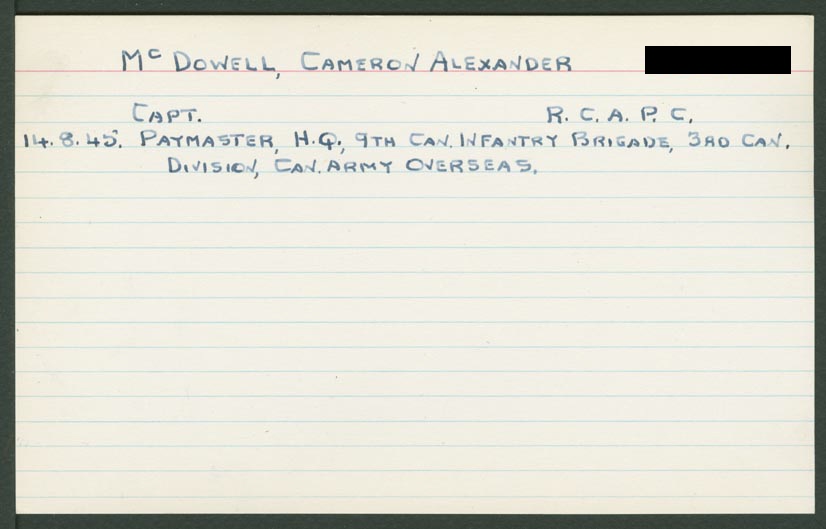 McDOWELL, CAMERON ALEXANDER
CAPT. R. C. A. P. C.
14.8.45. PAYMASTER, H.Q., 9TH CAN. INFANTRY BRIGADE, 3RD CAN.
DIVISION, CAN. ARMY OVERSEAS.